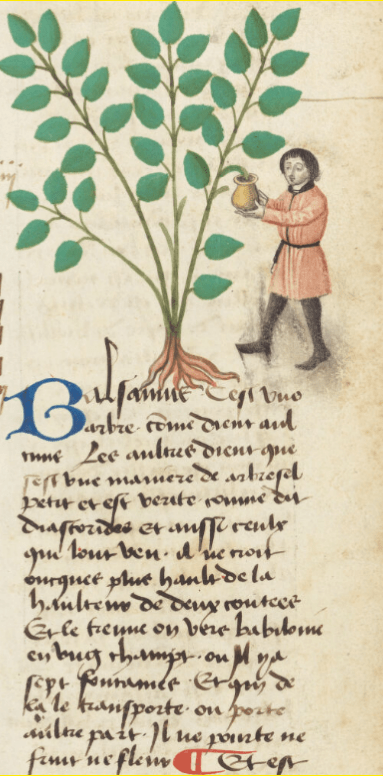 Balsamus C'est ung
arbre. cōme dient aul
cuns Les aultres dient que
sest vne maniere de arbresel
petit et est verite comme dit
diascorides et aussi ceulx
qui lont veu. il ne croit
oncques plus hault de la
haulteur de deux coutees
Et le treuue on vers babiloine
en vng champt. ou Il y a
sept fontaines. Et qui de
la le transporte. ou porte
aultre part. Il ne pourte ne
fruit ne fleur ¶ Et est